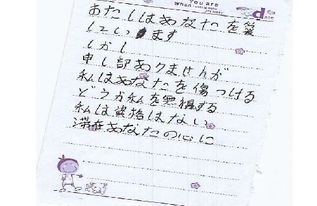 You are
あたしはあなたを愛
してい ます
しかし
申し訳ありませんが
私はあなたを傷つける
どうか私を無視する
私は資格はない
滞在あなたの心に